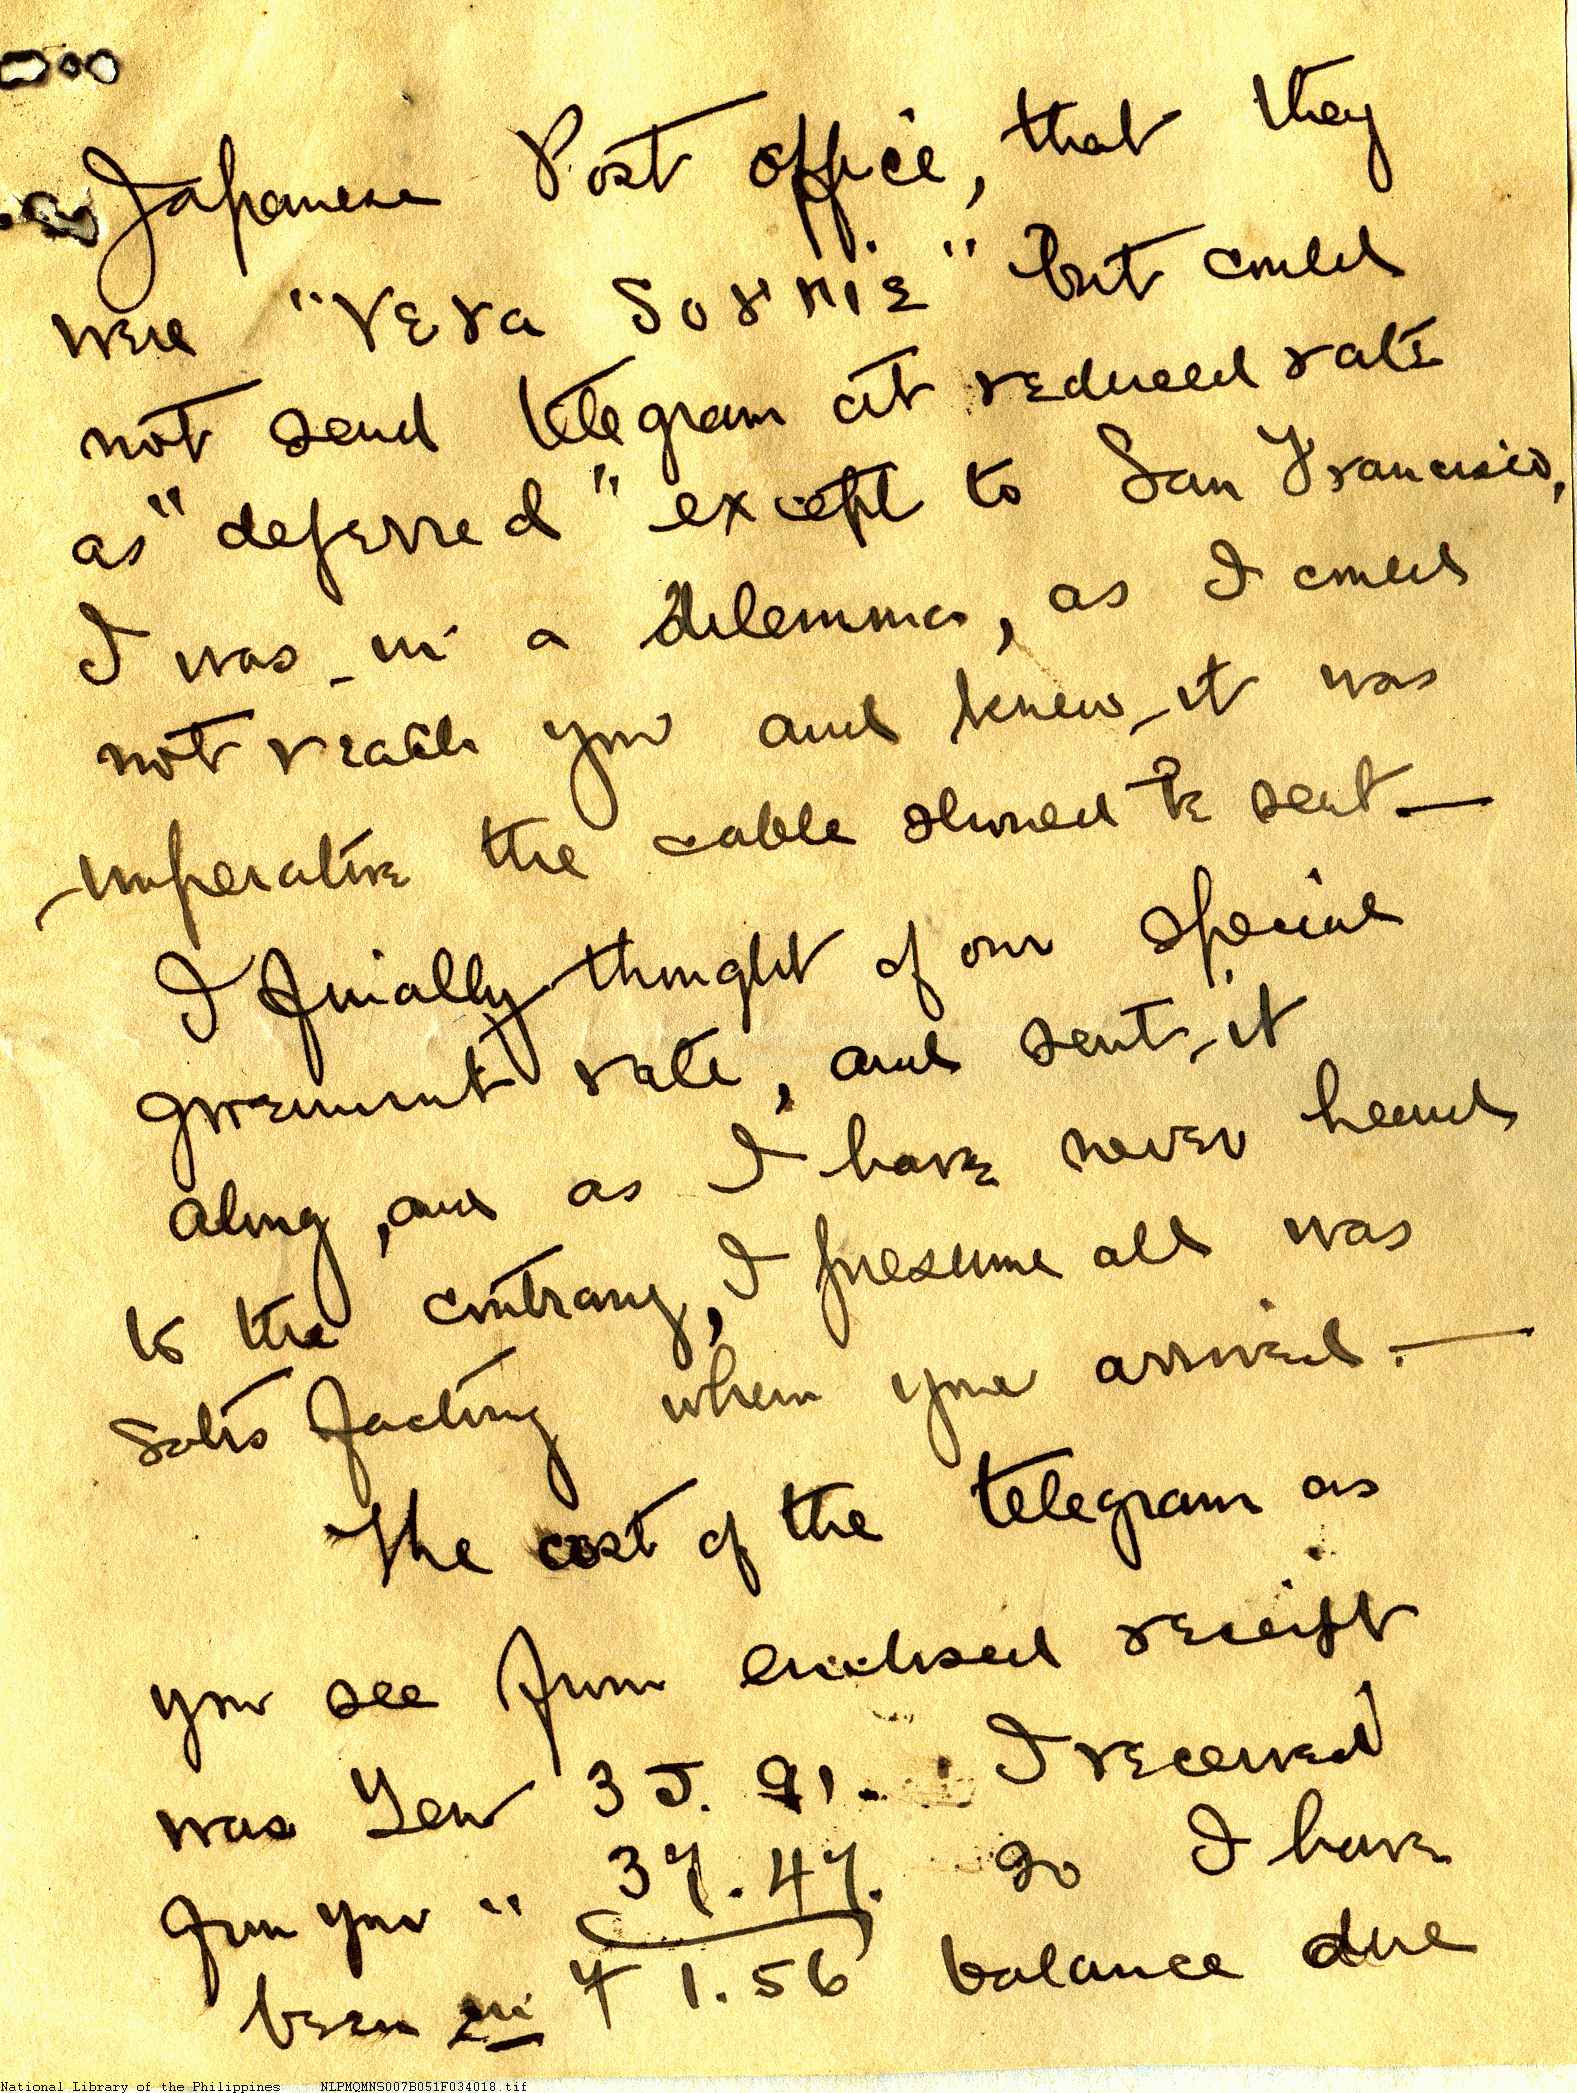 Japanese Post office, that they
were "vera sorrie" but could
not send telegram at reduced rate
as "deferred" except to San Francisco,
I was in a dilemma, as I could
not reach you and knew it was
imperative the cable should be sent —
I finially thought of our special
government rate, and sent it
along, and as I have never heard
to the contrary, I presume all was
satisfactory when you arrived. —
The cost of the telegram as
you see from enclosed receipt
was Yen 35.91. I received
from you " 37.47. So I have
been in Y 1.56 balance due
National Library of the Philippines NLPMQMNS007B051F034018.tif